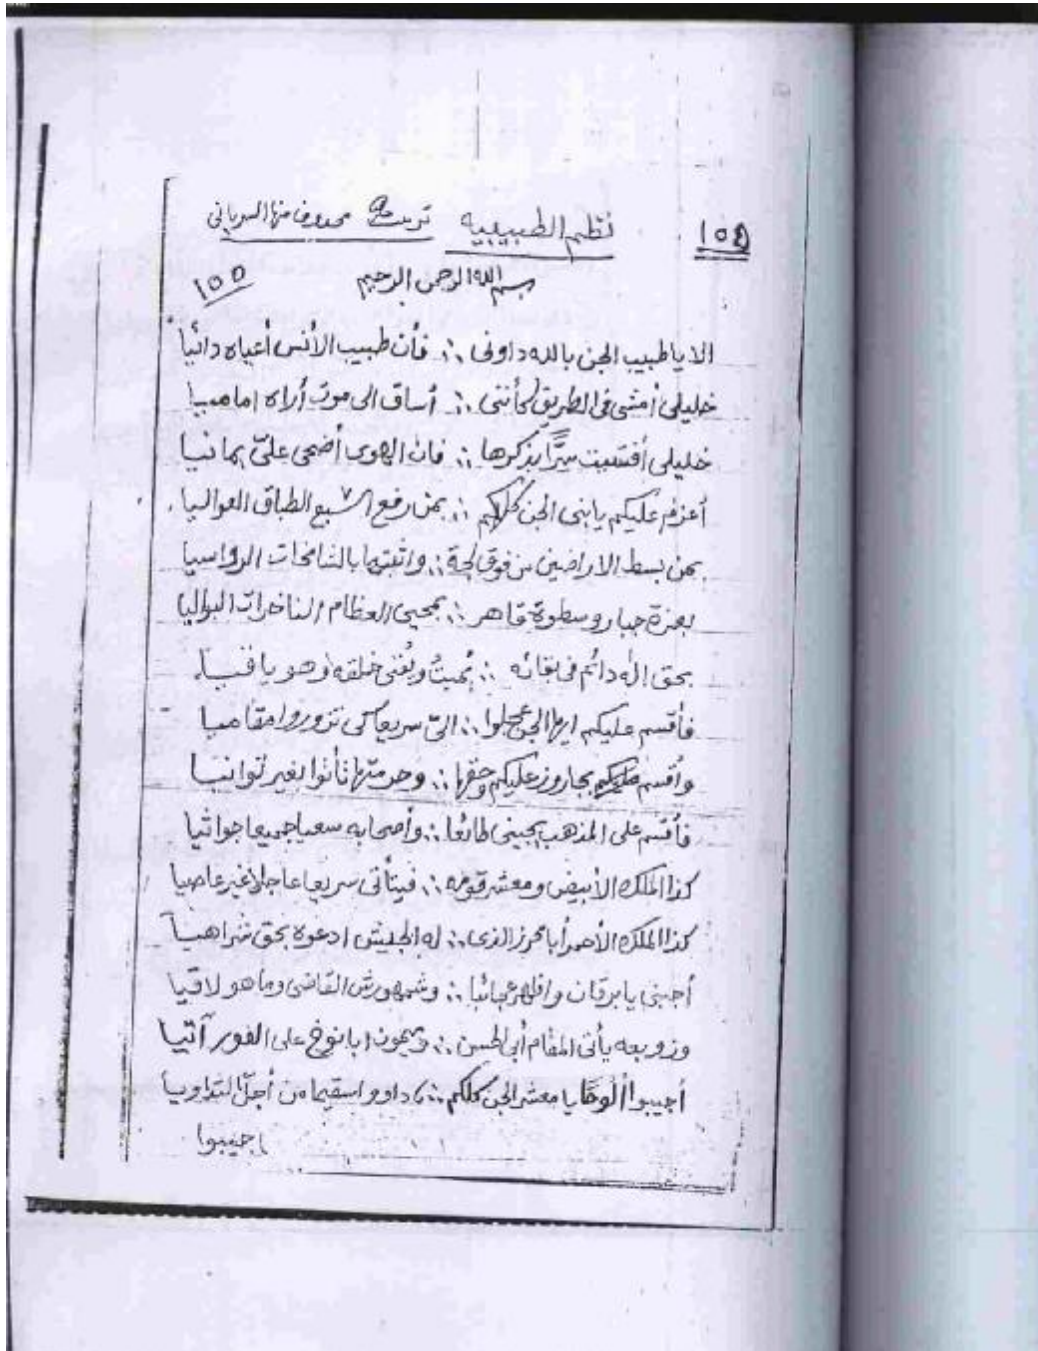 ١٥٥ نظم الطبيبية محذوف منها السرياني
بسم الله الرحمن الرحيم ١٥٥
الا يا طبيب الجن بالله داونى ∴ فأن طبيب الأنس أعياه دائيا
خليلى أمشى فى الطريق كأننى ∴ أساق الى موت أراه اماميا
خليلى أفشيت سرًّا بذكرها ∴ فان الهوى أضحى علىّ بمانيا
أعزم عليكم يا بنى الجن كلهم ∴ بمن رفع السبع الطباق العواليا
بمن بسط الاراضين من فوق لجة ∴ واثبتها بالشامخات الرواسيا
بعزة جبار وسطوة قاهر ∴ بمحيى العظام الناخرات البواليا
بحق إله دائم فى بقائه ∴ يُميتُ ويُفنى خلقه وهو باقيا
فأقسم عليكم ايها الجن عجلوا ∴ الىّ سريعا كى تزوروا مقاميا
وأقسم عليكم بجاروز عليكم وحقها ∴ وحرمتها تأتوا بغير توانيا
فأقسم على المذهب يجينى طائعا ∴ وأصحابه سعيا جميعا جواثيا
كذا الملك الأبيض ومعشر قومه ∴ فيتأتى سريعا عاجلا غير عاصيا
كذا الملك الأحمر أبا محرز الذى ∴ له الجيش ادعوه بحق شراهيا
أجبنى يا برقان واظهر عجائبا ∴ وشمهورش القاضى وما هو لاقيا
وزوبعه يأتى المقام أبى الحسن ∴ وميمون ابا نوخ على الفور آتيا
أجيبوا ألُوحًا يا معشر الجن كلكم ∴ داووا سقيما من أجل التداويا
اجيبوا